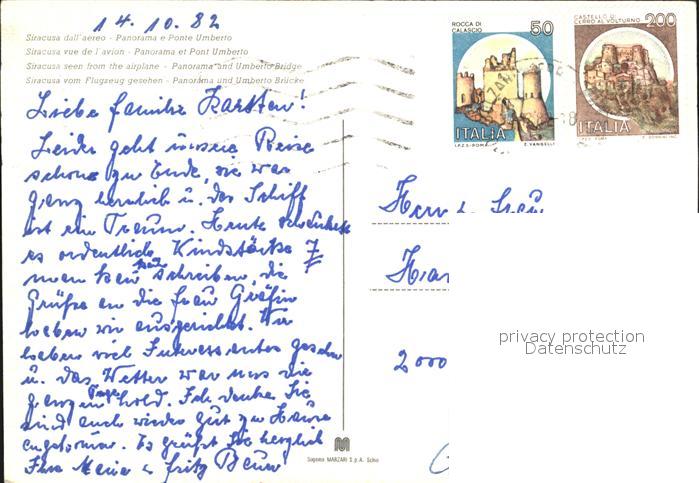 14.10.82
Siracusa dall'aereo - Panorama e Ponte Umberto
Siracusa vue de l'avion - Panorama et Pont Umberto
Siracusa seen from the airplane - Panorama and Umberto Bridge
Siracusa vom Flugzeug gesehen - Panorama und Umberto Brücke
ROCCA DI
CALASCIO
50
ITALIA
I.P.Z.S.-ROMA E. VANGELLI
CASTELLO DI
CERRO AL VOLTURNO
200
ITALIA
Liebe Familie Karsten!
Leider geht unsere Reise
schon zu Ende, sie war
ganz herrlich u. das Schiff
ist ein Traum. Heute schaukelt
es ordentlich, Windstärke 7
man kann kaum schreiben, die
Grüße an die Frau Gräfin
haben wir ausgerichtet. Wir
haben viel Interessantes gesehen
u. das Wetter war uns die
ganzen Tage hold. Ich denke Sie
sind auch wieder gut zu Hause
angekommen. Es grüßt Sie herzlich
Ihre Maria u. Fritz
Herrn u. Frau
2000
privacy protection
Datenschutz
Sagoma MARZARI S.p.A. Schio